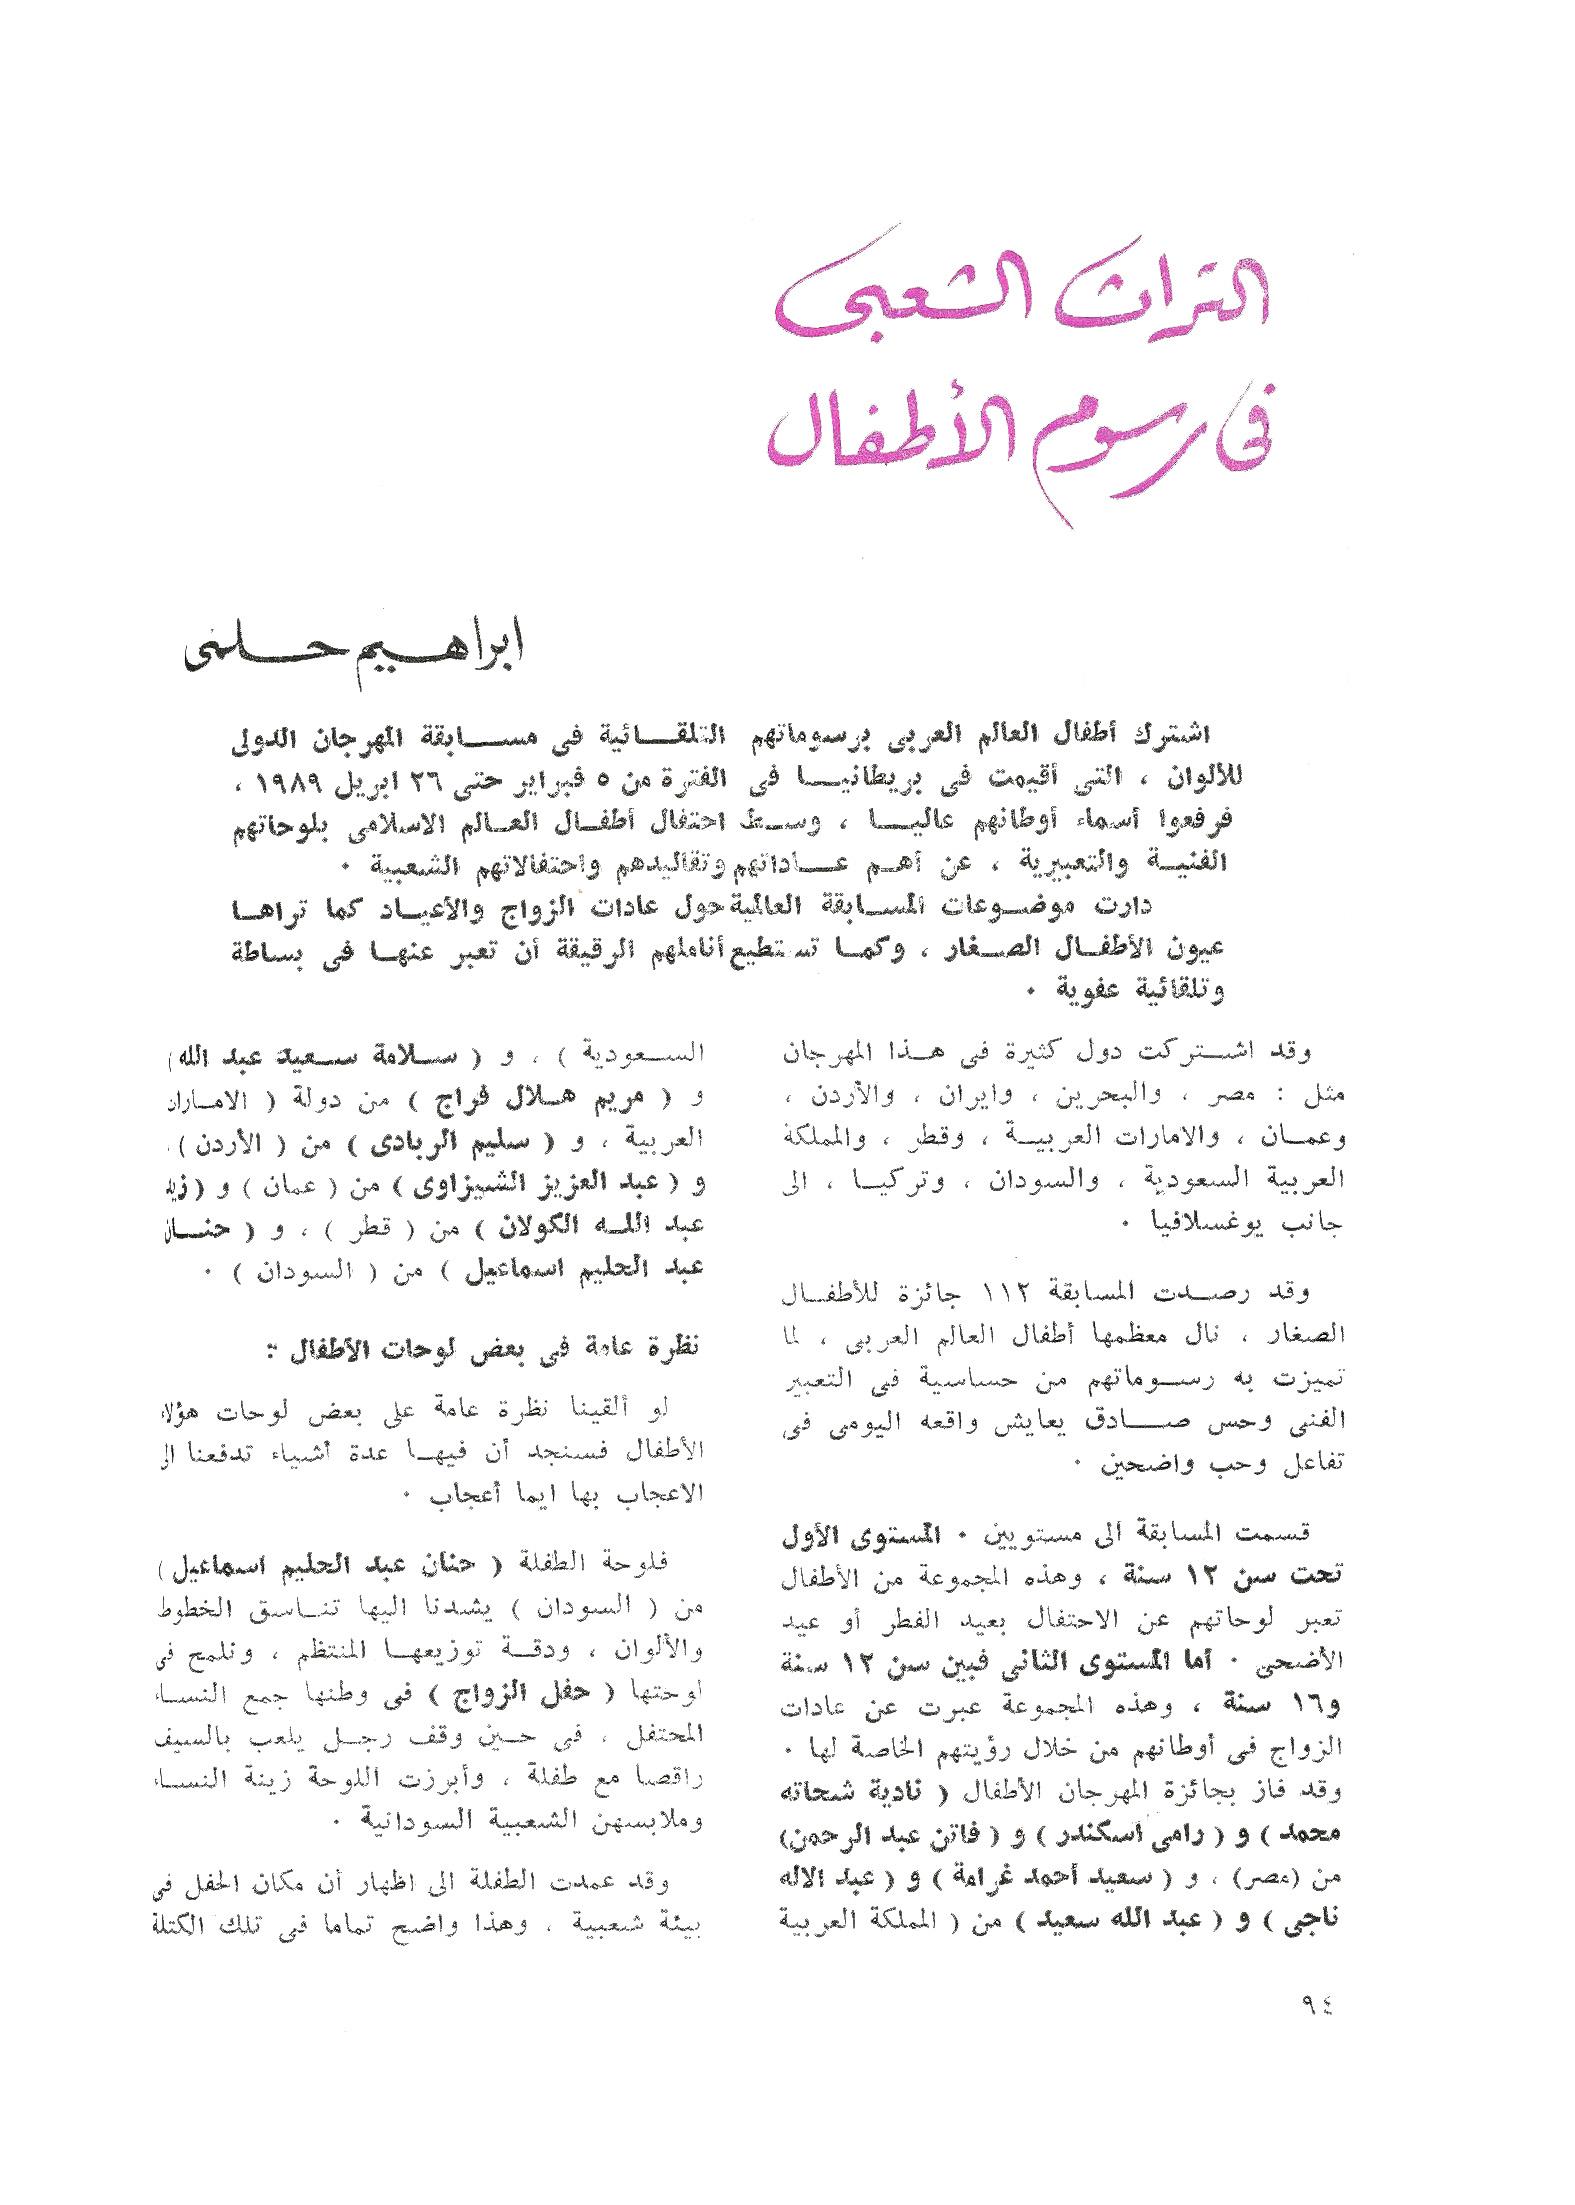 التراث الشعبى
فى رسوم الأطفال
ابراهيم حلمى
اشترك أطفال العالم العربى برسوماتهم التلقائية فى مسابقة المهرجان الدولى
للألوان ، التى أقيمت فى بريطانيا فى الفترة من ٥ فبراير حتى ٢٦ ابريل ١٩٨٩ ،
فرفعوا أسماء أوطانهم عاليا ، وسط احتفال أطفال العالم الاسلامى بلوحاتهم
الفنية والتعبيرية ، عن أهم عاداتهم وتقاليدهم واحتفالاتهم الشعبية ٠
دارت موضوعات المسابقة العالمية حول عادات الزواج والأعياد كما تراها
عيون الأطفال الصغار ، وكما تستطيع أناملهم الرقيقة أن تعبر عنها فى بساطة
وتلقائية عفوية ٠
وقد اشتركت دول كثيرة فى هذا المهرجان
مثل : مصر ، والبحرين ، وايران ، والأردن ،
وعمان ، والامارات العربية ، وقطر ، والمملكة
العربية السعودية ، والسودان ، وتركيا ، الى
جانب يوغسلافيا ٠
وقد رصدت المسابقة ١١٢ جائزة للأطفال
الصغار ، نال معظمها أطفال العالم العربى ، لما
تميزت به رسوماتهم من حساسية فى التعبير
الفنى وحس صادق يعايش واقعه اليومى فى
تفاعل وحب واضحين ٠
قسمت المسابقة الى مستويين ٠ المستوى الأول
تحت سن ١٢ سنة ، وهذه المجموعة من الأطفال
تعبر لوحاتهم عن الاحتفال بعيد الفطر أو عيد
الأضحى ٠ أما المستوى الثانى فبين سن ١٢ سنة
و١٦ سنة ، وهذه المجموعة عبرت عن عادات
الزواج فى أوطانهم من خلال رؤيتهم الخاصة لها ٠
وقد فاز بجائزة المهرجان الأطفال ( نادية شحاته
محمد ) و ( رامى اسكندر ) و ( فاتن عبد الرحمن)
من (مصر) ، و ( سعيد أحمد غرامة ) و ( عبد الاله
ناجى ) و ( عبد الله سعيد ) من ( المملكة العربية
السعودية ) ، و ( سلامة سعيد عبد الله )
و ( مريم هلال فراج ) من دولة ( الامارات
العربية ، و ( سليم الربادى ) من ( الأردن ) ،
و ( عبد العزيز الشيزاوى ) من ( عمان ) و ( زيد
عبد الله الكولان ) من ( قطر ) ، و ( حنان
عبد الحليم اسماعيل ) من ( السودان ) ٠
نظرة عامة فى بعض لوحات الأطفال :
لو ألقينا نظرة عامة على بعض لوحات هؤلاء
الأطفال فسنجد أن فيها عدة أشياء تدفعنا الى
الاعجاب بها ايما أعجاب ٠
فلوحة الطفلة ( حنان عبد الحليم اسماعيل )
من ( السودان ) يشدنا اليها تناسق الخطوط
والألوان ، ودقة توزيعها المنتظم ، ونلمح فى
لوحتها ( حفل الزواج ) فى وطنها جمع النساء
المحتفل ، فى حين وقف رجل يلعب بالسيف
راقصا مع طفلة ، وأبرزت اللوحة زينة النساء
وملابسهن الشعبية السودانية ٠
وقد عمدت الطفلة الى اظهار أن مكان الحفل فى
بيئة شعبية ، وهذا واضح تماما فى تلك الكتلة
٩٤